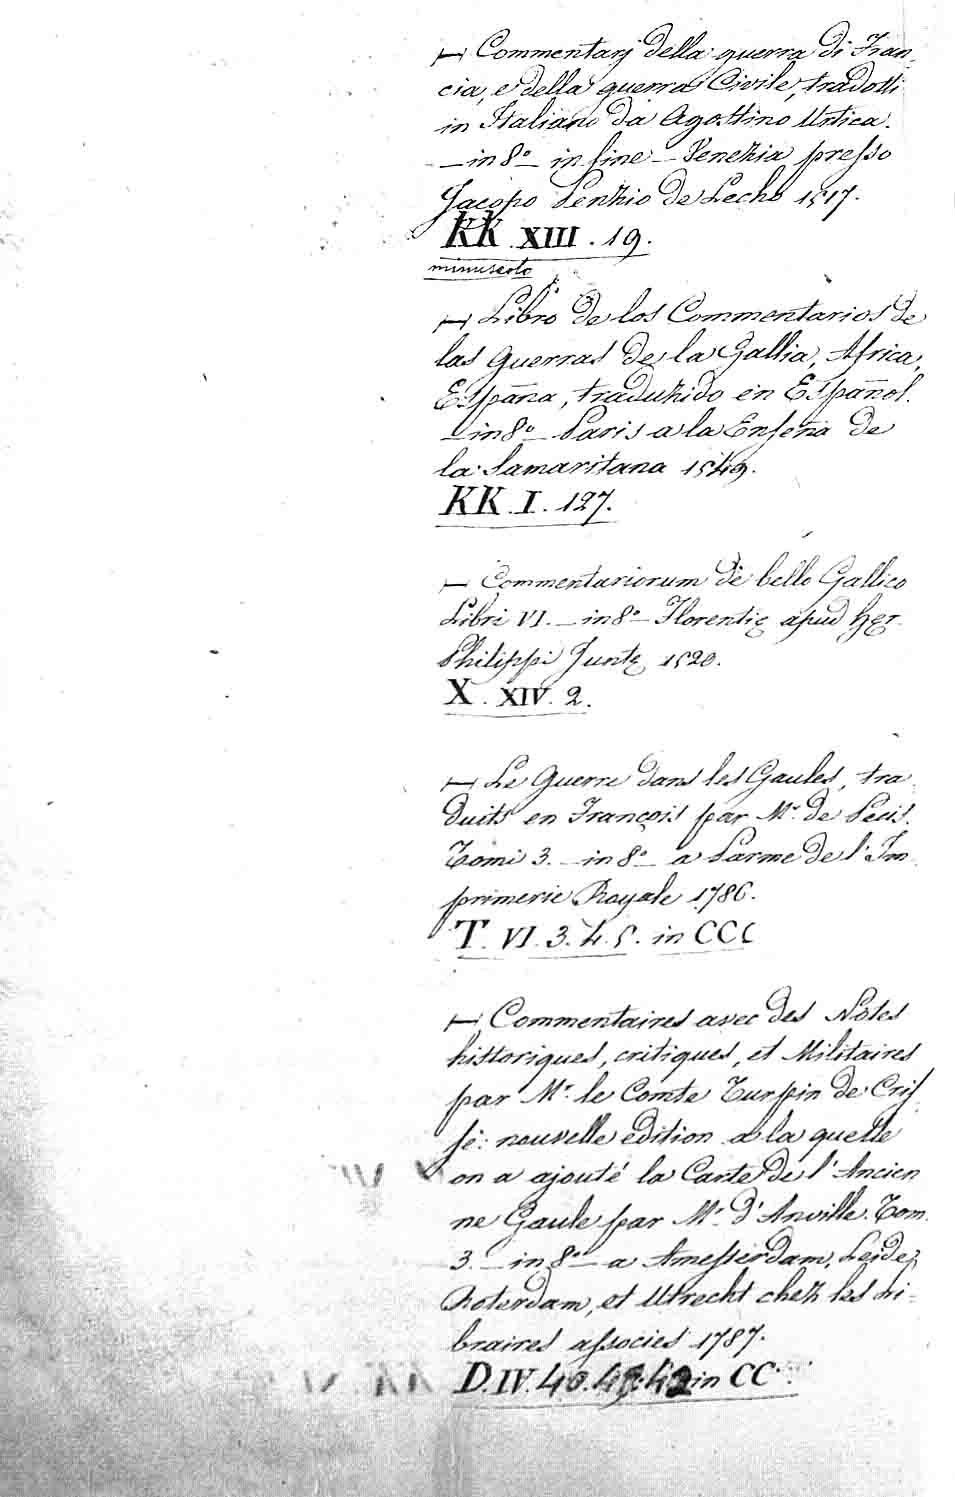 — Commentarj della guerra di Fran-
cia, e della guerra Civile, tradotti
in Italiano da Agostino Urtica.
— in 8.° — in fine — Venezia presso
Jacopo Penzio de Lecho 1517.
KK. XIII. 19.
minuscolo
— Libro de los Commentarios de
las Guerras de la Gallia, Africa,
España, traduzido en Español.
— in 8.° — Paris a la Enseña de
la Samaritana 1549.
KK. I. 127.
— Commentariorum de bello Gallico
Libri VI. — in 8.° — Florentię apud hęr.
Philippi Juntę 1520.
X. XIV. 2.
— Le Guerre dans les Gaules, tra-
duits en François par M.r de Pecis.
Tomi 3. — in 8.° — a Parme de l'Im-
primerie Royale 1786.
T. VI. 3. 4. 5. in CCC
— Commentaires avec des Notes
historiques, critiques, et Militaires
par M.r le Comte Turpin de Cris-
sé: nouvelle édition a la quelle
on a ajouté la Carte de l'Ancien-
ne Gaule par M.r d'Anville. Tom.
3. — in 8.° — a Amesterdam, Leide,
Roterdam, et Utrecht chez les Li-
braires associes 1787.
D. IV. 40. 41. 42 in CC